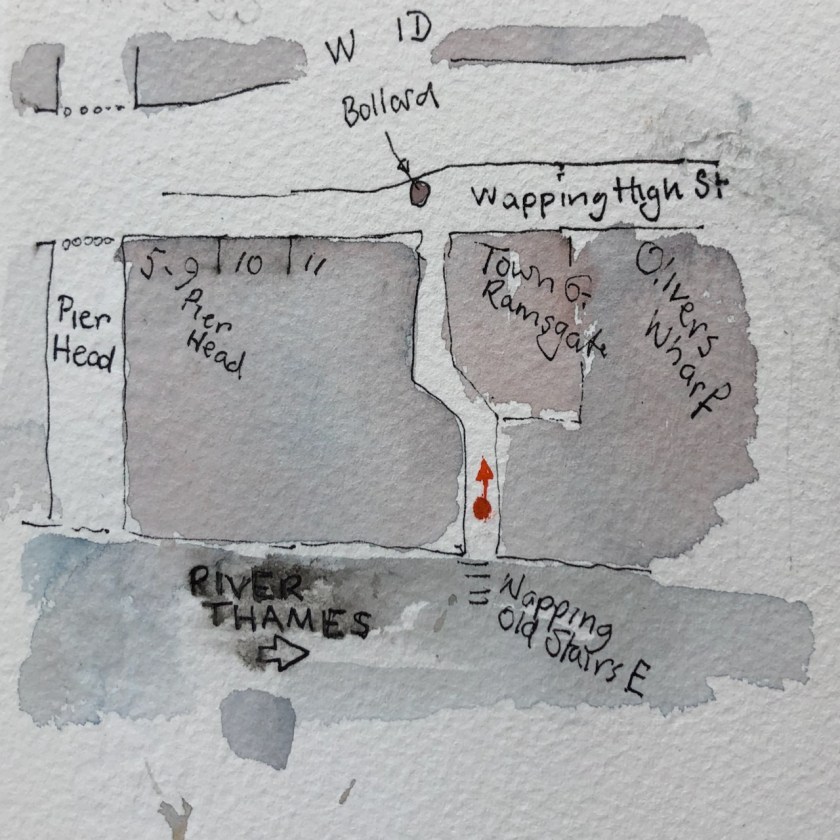 W ID
Bollard
Wapping High St
5-9
10
11
Pier
Head
Town of
Ramsgate
Olivers
Wharf
Pier
Head
RIVER
THAMES
Wapping
Old Stairs E